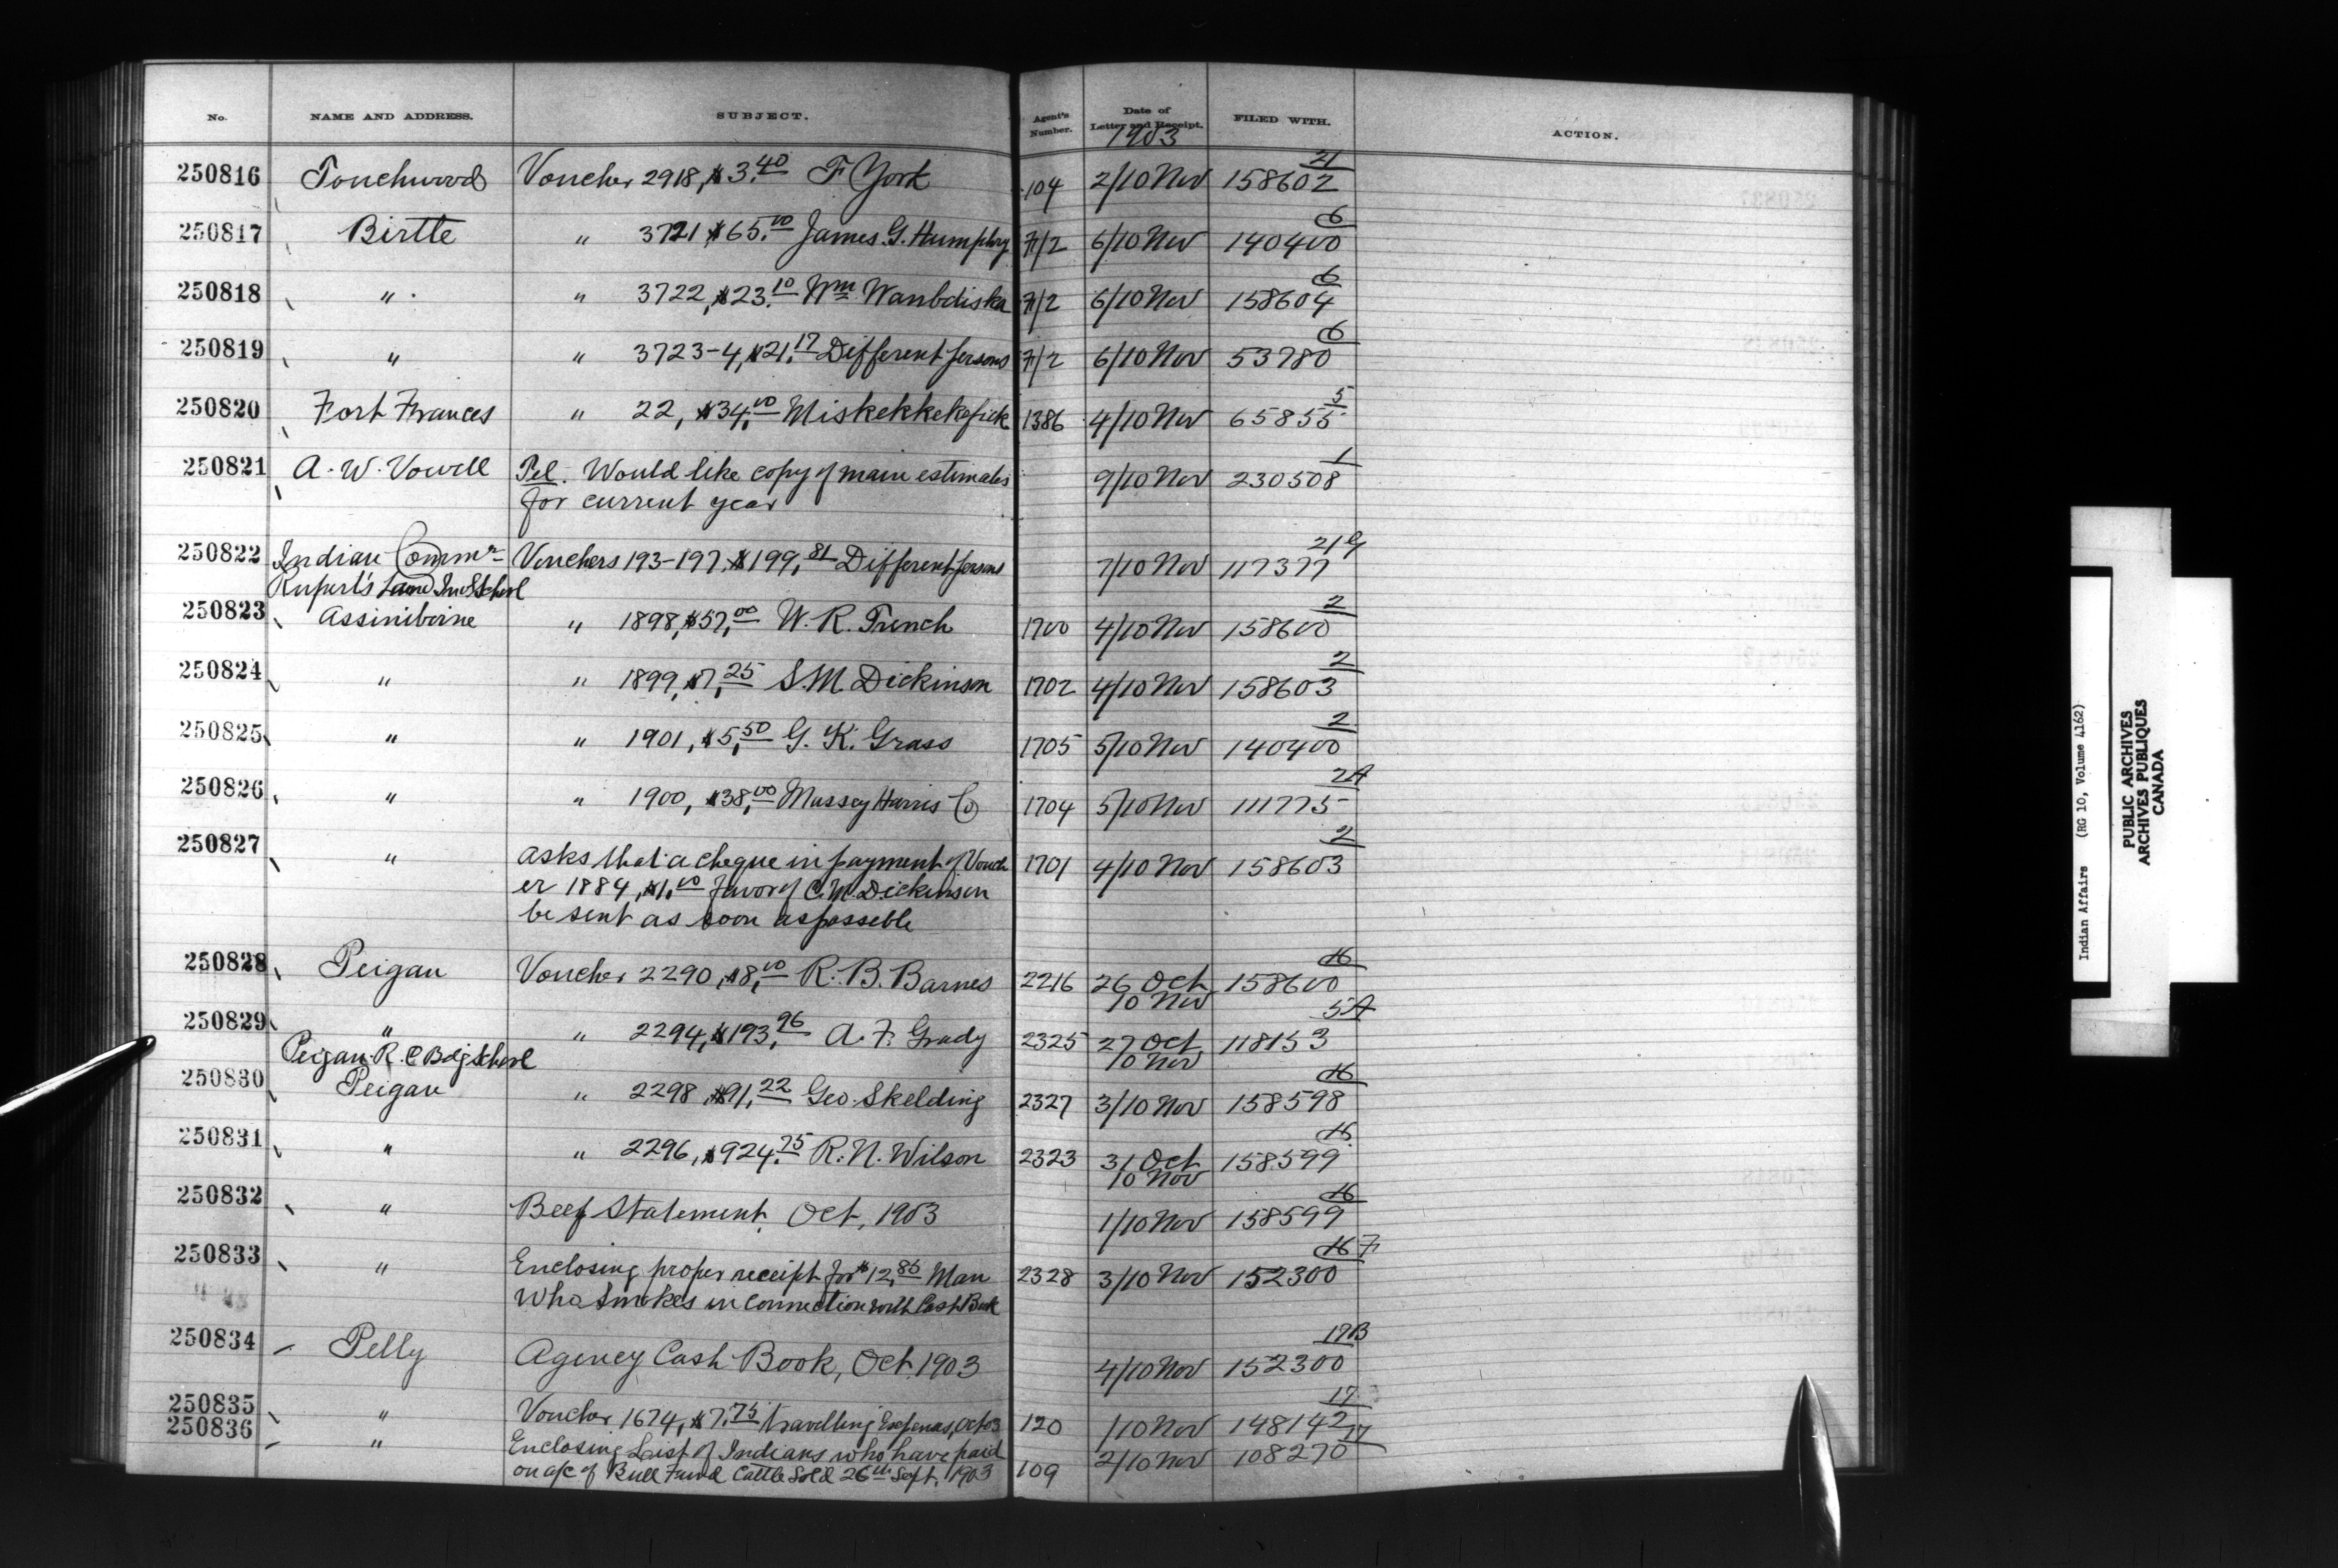 No. NAME AND ADDRESS. SUBJECT. Agent's Number. Date of Letter and Receipt. FILED WITH. ACTION.
1903
21
250816 Touchwood Voucher 2918, $3.40 F York 104 2/10 Nov 158602
6
250817 Birtle " 3721 $65.00 James G. Humphry 7/2 6/10 Nov 140400
6
250818 " " 3722, $23.10 Wm Wanbdiska 7/2 6/10 Nov 158604
6
250819 " " 3723-4, $21.17 Different persons 7/2 6/10 Nov 53780
5
250820 Fort Frances " 22, $34.00 Miskekkekepick 1386 4/10 Nov 65855
1
250821 A. W. Vowell Tel. Would like copy of main estimates 9/10 Nov 230508
for current year
21 G
250822 Indian Commr Vouchers 193-197, $199.81 Different persons 7/10 Nov 117377
Rupert's Land Ind School
2
250823 Assiniboine " 1898, $57.00 W. R. Trench 1700 4/10 Nov 158600
2
250824 " " 1899, $7.25 S. M. Dickinson 1702 4/10 Nov 158603
2
250825 " " 1901, $5.50 G. K. Grass 1705 5/10 Nov 140400
2A
250826 " " 1900, $38.00 Massey Harris Co 1704 5/10 Nov 111775
2
250827 " asks that a cheque in payment of Vouch 1701 4/10 Nov 158603
er 1884, $1.00 favor of C. M. Dickinson
be sent as soon as possible
16
250828 Peigan Voucher 2290, $8.00 R. B. Barnes 2216 26 Oct 158600
10 Nov
5A
250829 " " 2294, $193.96 A. F. Grady 2325 27 Oct 118153
Peigan R. C Bdg School 10 Nov
16
250830 Peigan " 2298, $91.22 Geo. Skelding 2327 3/10 Nov 158598
16
250831 " " 2296, $924.75 R. N. Wilson 2323 31 Oct 158599
10 Nov
16
250832 " Beef Statement, Oct, 1903 1/10 Nov 158599
16 F
250833 " Enclosing proper receipt for $12.85 Man 2328 3/10 Nov 152300
Who Smokes in connection with Cash Book
17B
250834 Pelly Agency Cash Book, Oct 1903 4/10 Nov 152300
17
250835 " Voucher 1674, $7.75 travelling Expenses, Oct 03 120 1/10 Nov 148142
17
250836 " Enclosing List of Indians who have paid 109 2/10 Nov 108270
on a/c of Bull Fund Cattle Sold 26th Sept. 1903
Indian Affairs (RG 10, Volume 4162)
PUBLIC ARCHIVES
ARCHIVES PUBLIQUES
CANADA